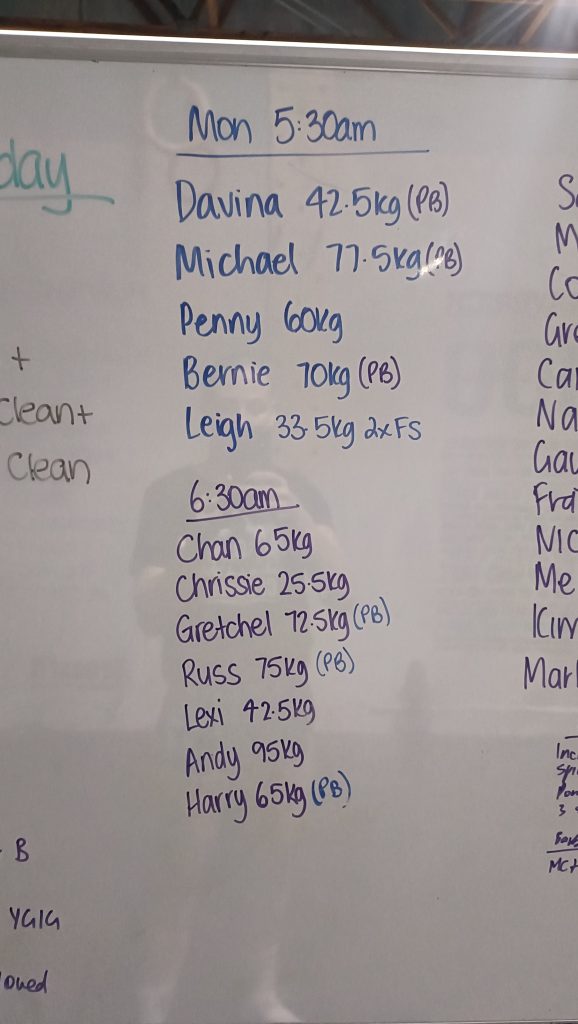 day
+
Clean+
Clean
B
YGIG
Mon 5:30am
Davina 42.5kg (PB)
Michael 77.5kg (PB)
Penny 60kg
Bernie 70kg (PB)
Leigh 33.5kg 2xFS
6:30am
Chan 65kg
Chrissie 25.5kg
Gretchel 72.5kg (PB)
Russ 75kg (PB)
Lexi 42.5kg
Andy 95kg
Harry 65kg (PB)
S
M
Co
Gr
Car
Na
Gau
Fra
Nic
Me
Kim
Mar
Inc
3